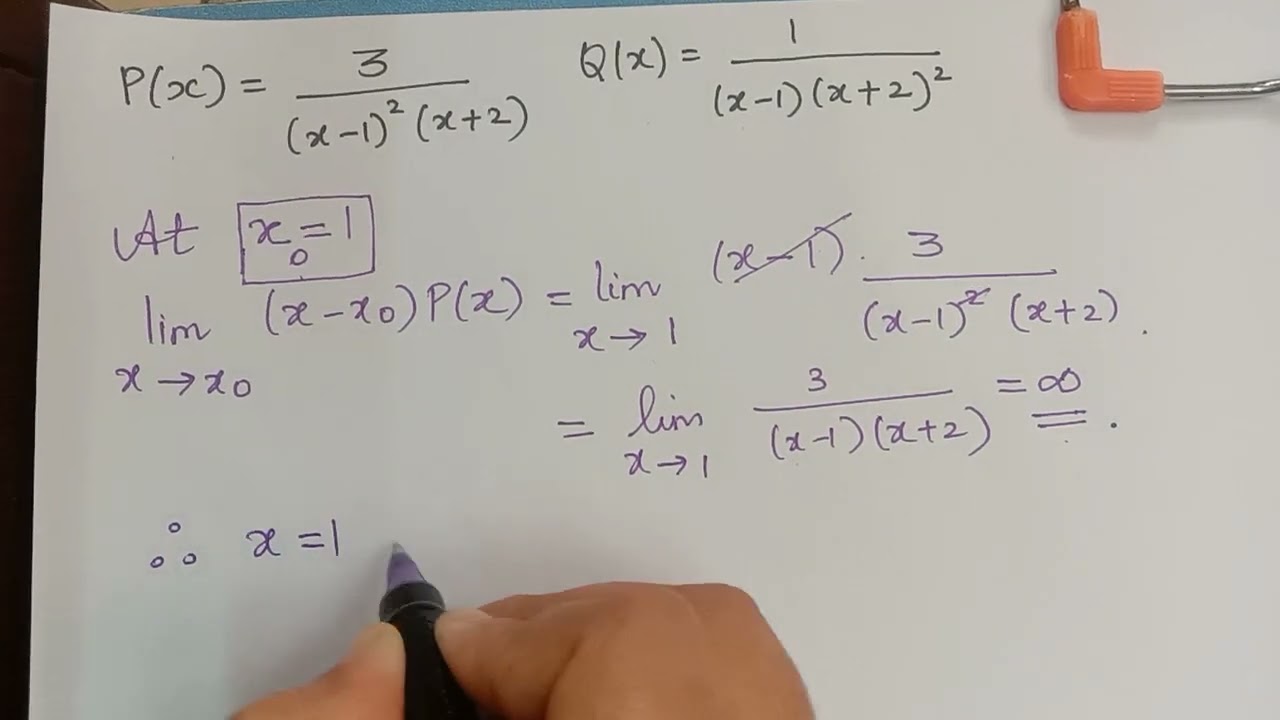 P(x) = 3 / (x-1)² (x+2)    Q(x) = 1 / (x-1) (x+2)²
At x₀ = 1
lim x→x₀ (x-x₀) P(x) = lim x→1 (x-1) . 3 / (x-1)² (x+2) .
= lim x→1 3 / (x-1) (x+2) = ∞ .
∴ x = 1